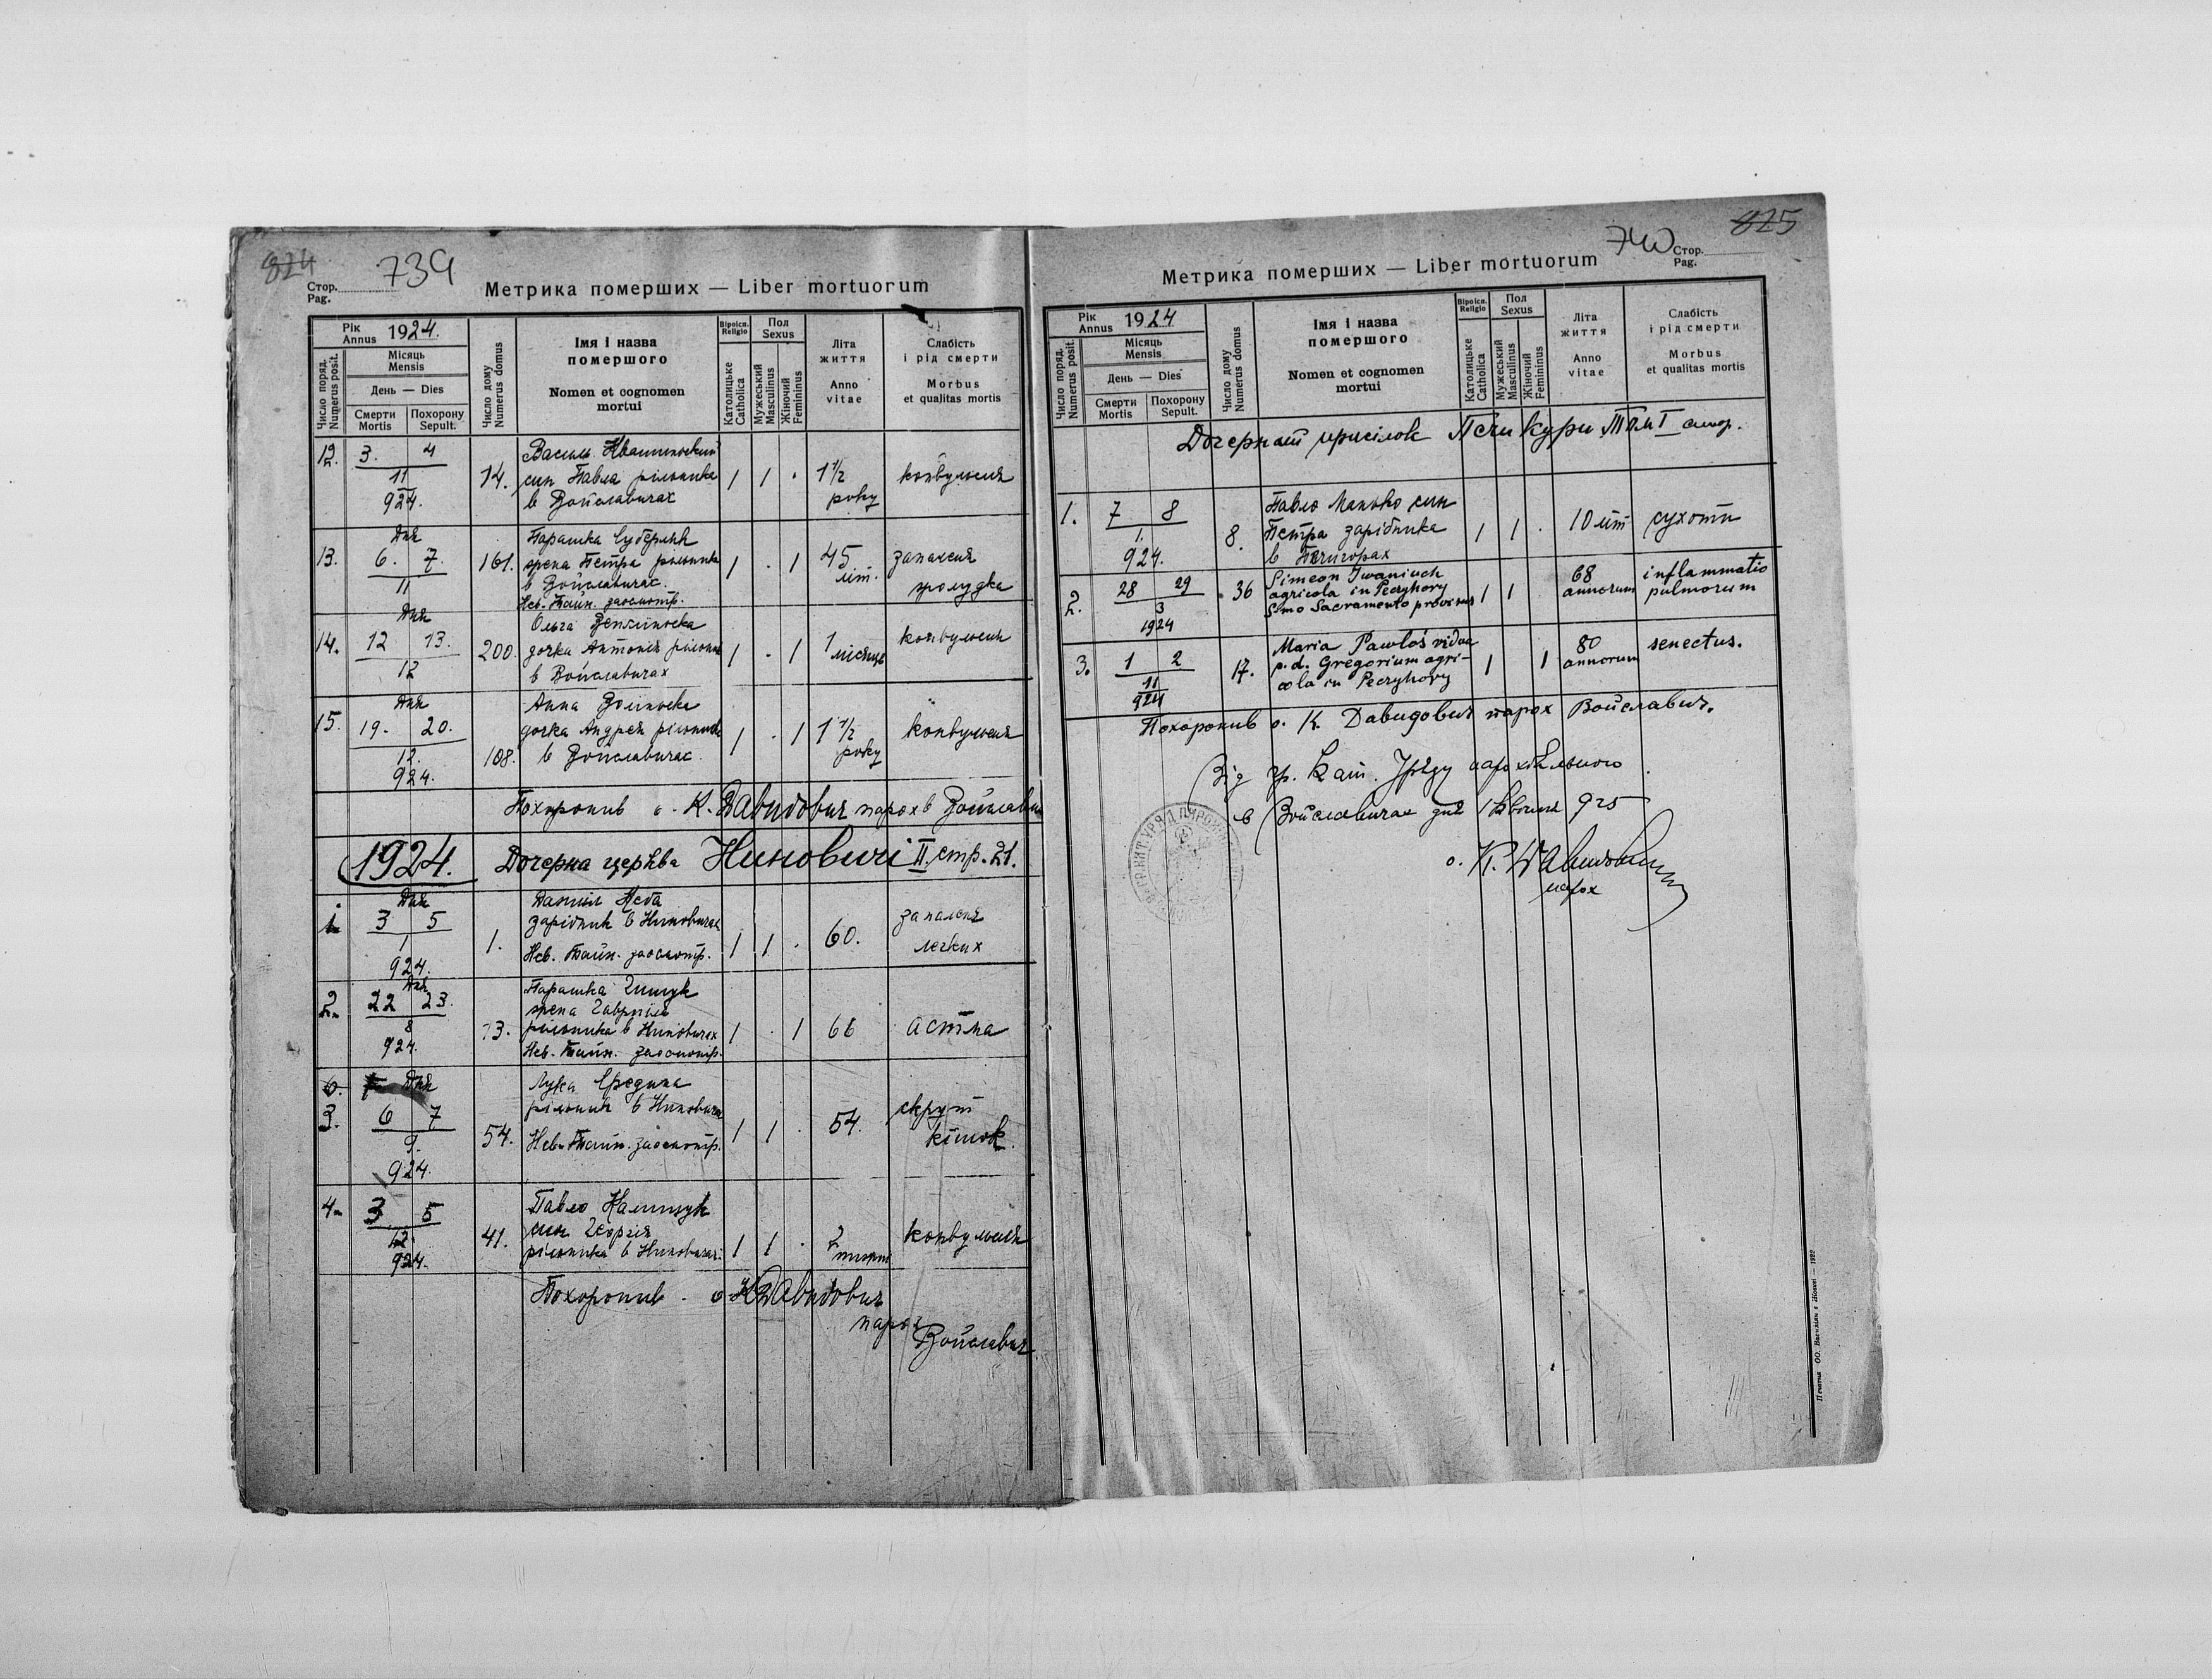 824
739
Стор.
Pag.
Метрика померших — Liber mortuorum
Рік
Annus 1924.
Число поряд.
Numerus posit.
Місяць
Mensis
День — Dies
Смерти
Mortis
Похорону
Sepult.
Число дому
Numerus domus
Імя і назва
помершого
Nomen et cognomen
mortui
Віроісп.
Religio
Католицьке
Catholica
Пол
Sexus
Мужеський
Masculinus
Жіночий
Femininus
Літа
життя
Anno
vitae
Слабість
і рід смерти
Morbus
et qualitas mortis
12. 3. 4
11
924.
14.
Василь
син Павла рільника
в Войславичах
1 1 .
1 1/2
року
конвульсия
13. Дня
6. 7.
11
161.
Парашка
жена Петра рільника
в Войславичах.
Нсв. Тайн. заосмотр.
1 . 1
45
літ.
запалєня
жолудка
14. Дня
12 13.
12
200.
Ольга
дочка Антонія рільника
в Войславичах
1 . 1
1
місяць
конвульсия
15. Дня
19. 20.
12.
924.
108.
Анна
дочка Андрея рільника
в Войславичах.
1 . 1
1 1/2
року
конвульсия
Похоронив о. К. Давидович парох в Войславич
1924. Дочерна церква Ниновичі II. стр. 21.
1. Дня
3 5
1
924.
1.
Данил
зарібник в Ниновичах
Нсв. Тайн. заосмотр.
1 1 .
60.
запалєня
легких
2. Дня
22 23.
8
924.
13.
Парашка
жена Гавриїла
рільника в Ниновичах
Нсв. Тайн. заосмотр.
1 . 1
66
астма
3. Дня
6 7
9.
924.
54.
Лука Середина
рільник в Ниновичах
Нсв. Тайн. заосмотр.
1 1 .
54.
скрут
кішок.
4. 3 5
12.
924.
41.
Павло
син Георгія
рільника в Ниновичах.
1 1 .
2
тижні
конвульсия
Похоронив о. К. Давидович
парох
Войславич.
825
740
Стор.
Pag.
Метрика померших — Liber mortuorum
Рік
Annus 1924
Число поряд.
Numerus posit.
Місяць
Mensis
День — Dies
Смерти
Mortis
Похорону
Sepult.
Число дому
Numerus domus
Імя і назва
помершого
Nomen et cognomen
mortui
Віроісп.
Religio
Католицьке
Catholica
Пол
Sexus
Мужеський
Masculinus
Жіночий
Femininus
Літа
життя
Anno
vitae
Слабість
і рід смерти
Morbus
et qualitas mortis
присілок
1. 7 8
1
924.
8.
Павло Манько син
Петра зарібника
в Печигорах
1 1 .
10 літ
сухоти
2. 28 29
3
1924
36
Simeon Iwaniuch
agricola in Peczyhory
Smo Sacramento provisus
1 1
68
annorum
inflammatio
pulmorum
3. 1 2
11
924
17.
Maria Pawłoś vidua
p. d. Gregorium agri-
cola in Peczyhory
1 1
80
annorum
senectus.
Похоронив о. К. Давидович парох Войславич.
Від гр. кат. Уряду парохіяльного
в Войславичах дня 1 Квітня 925
о. К. Давидович
парох
Печатня ОО. Василіян в Жовкві — 1922